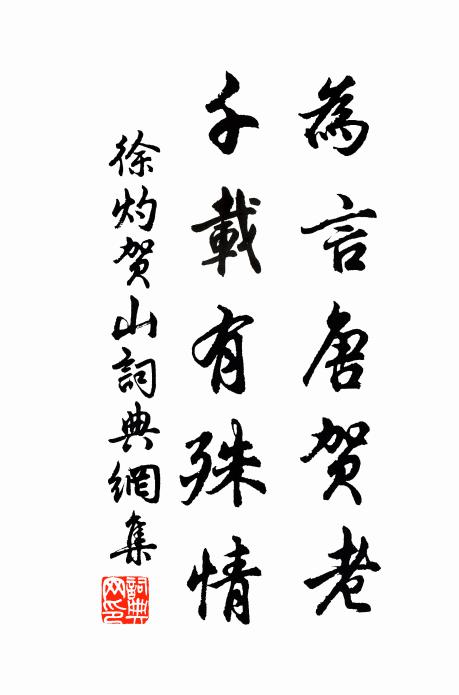 為言唐贺老
千載有殊情
徐灼贺山詞典網集
詞典網印